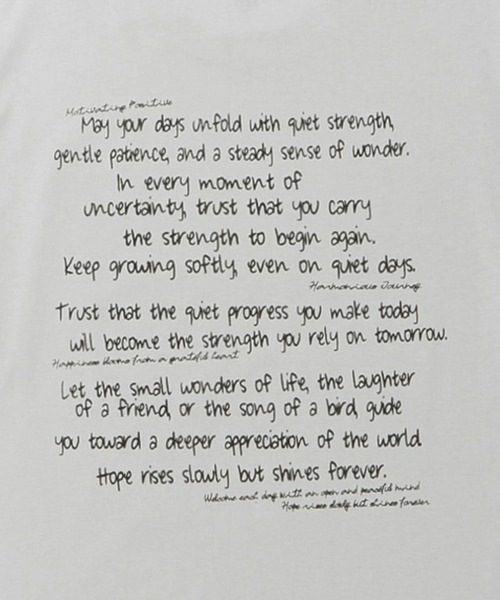 Motivating Positive
May your days unfold with quiet strength,
gentle patience, and a steady sense of wonder.
In every moment of
uncertainty, trust that you carry
the strength to begin again.
Keep growing softly, even on quiet days.
Harmonious Journey
Trust that the quiet progress you make today
will become the strength you rely on tomorrow.
Happiness blooms from a grateful heart
Let the small wonders of life, the laughter
of a friend, or the song of a bird, guide
you toward a deeper appreciation of the world.
Hope rises slowly but shines forever.
Welcome each day with an open and peaceful mind
Hope rises slowly but shines forever